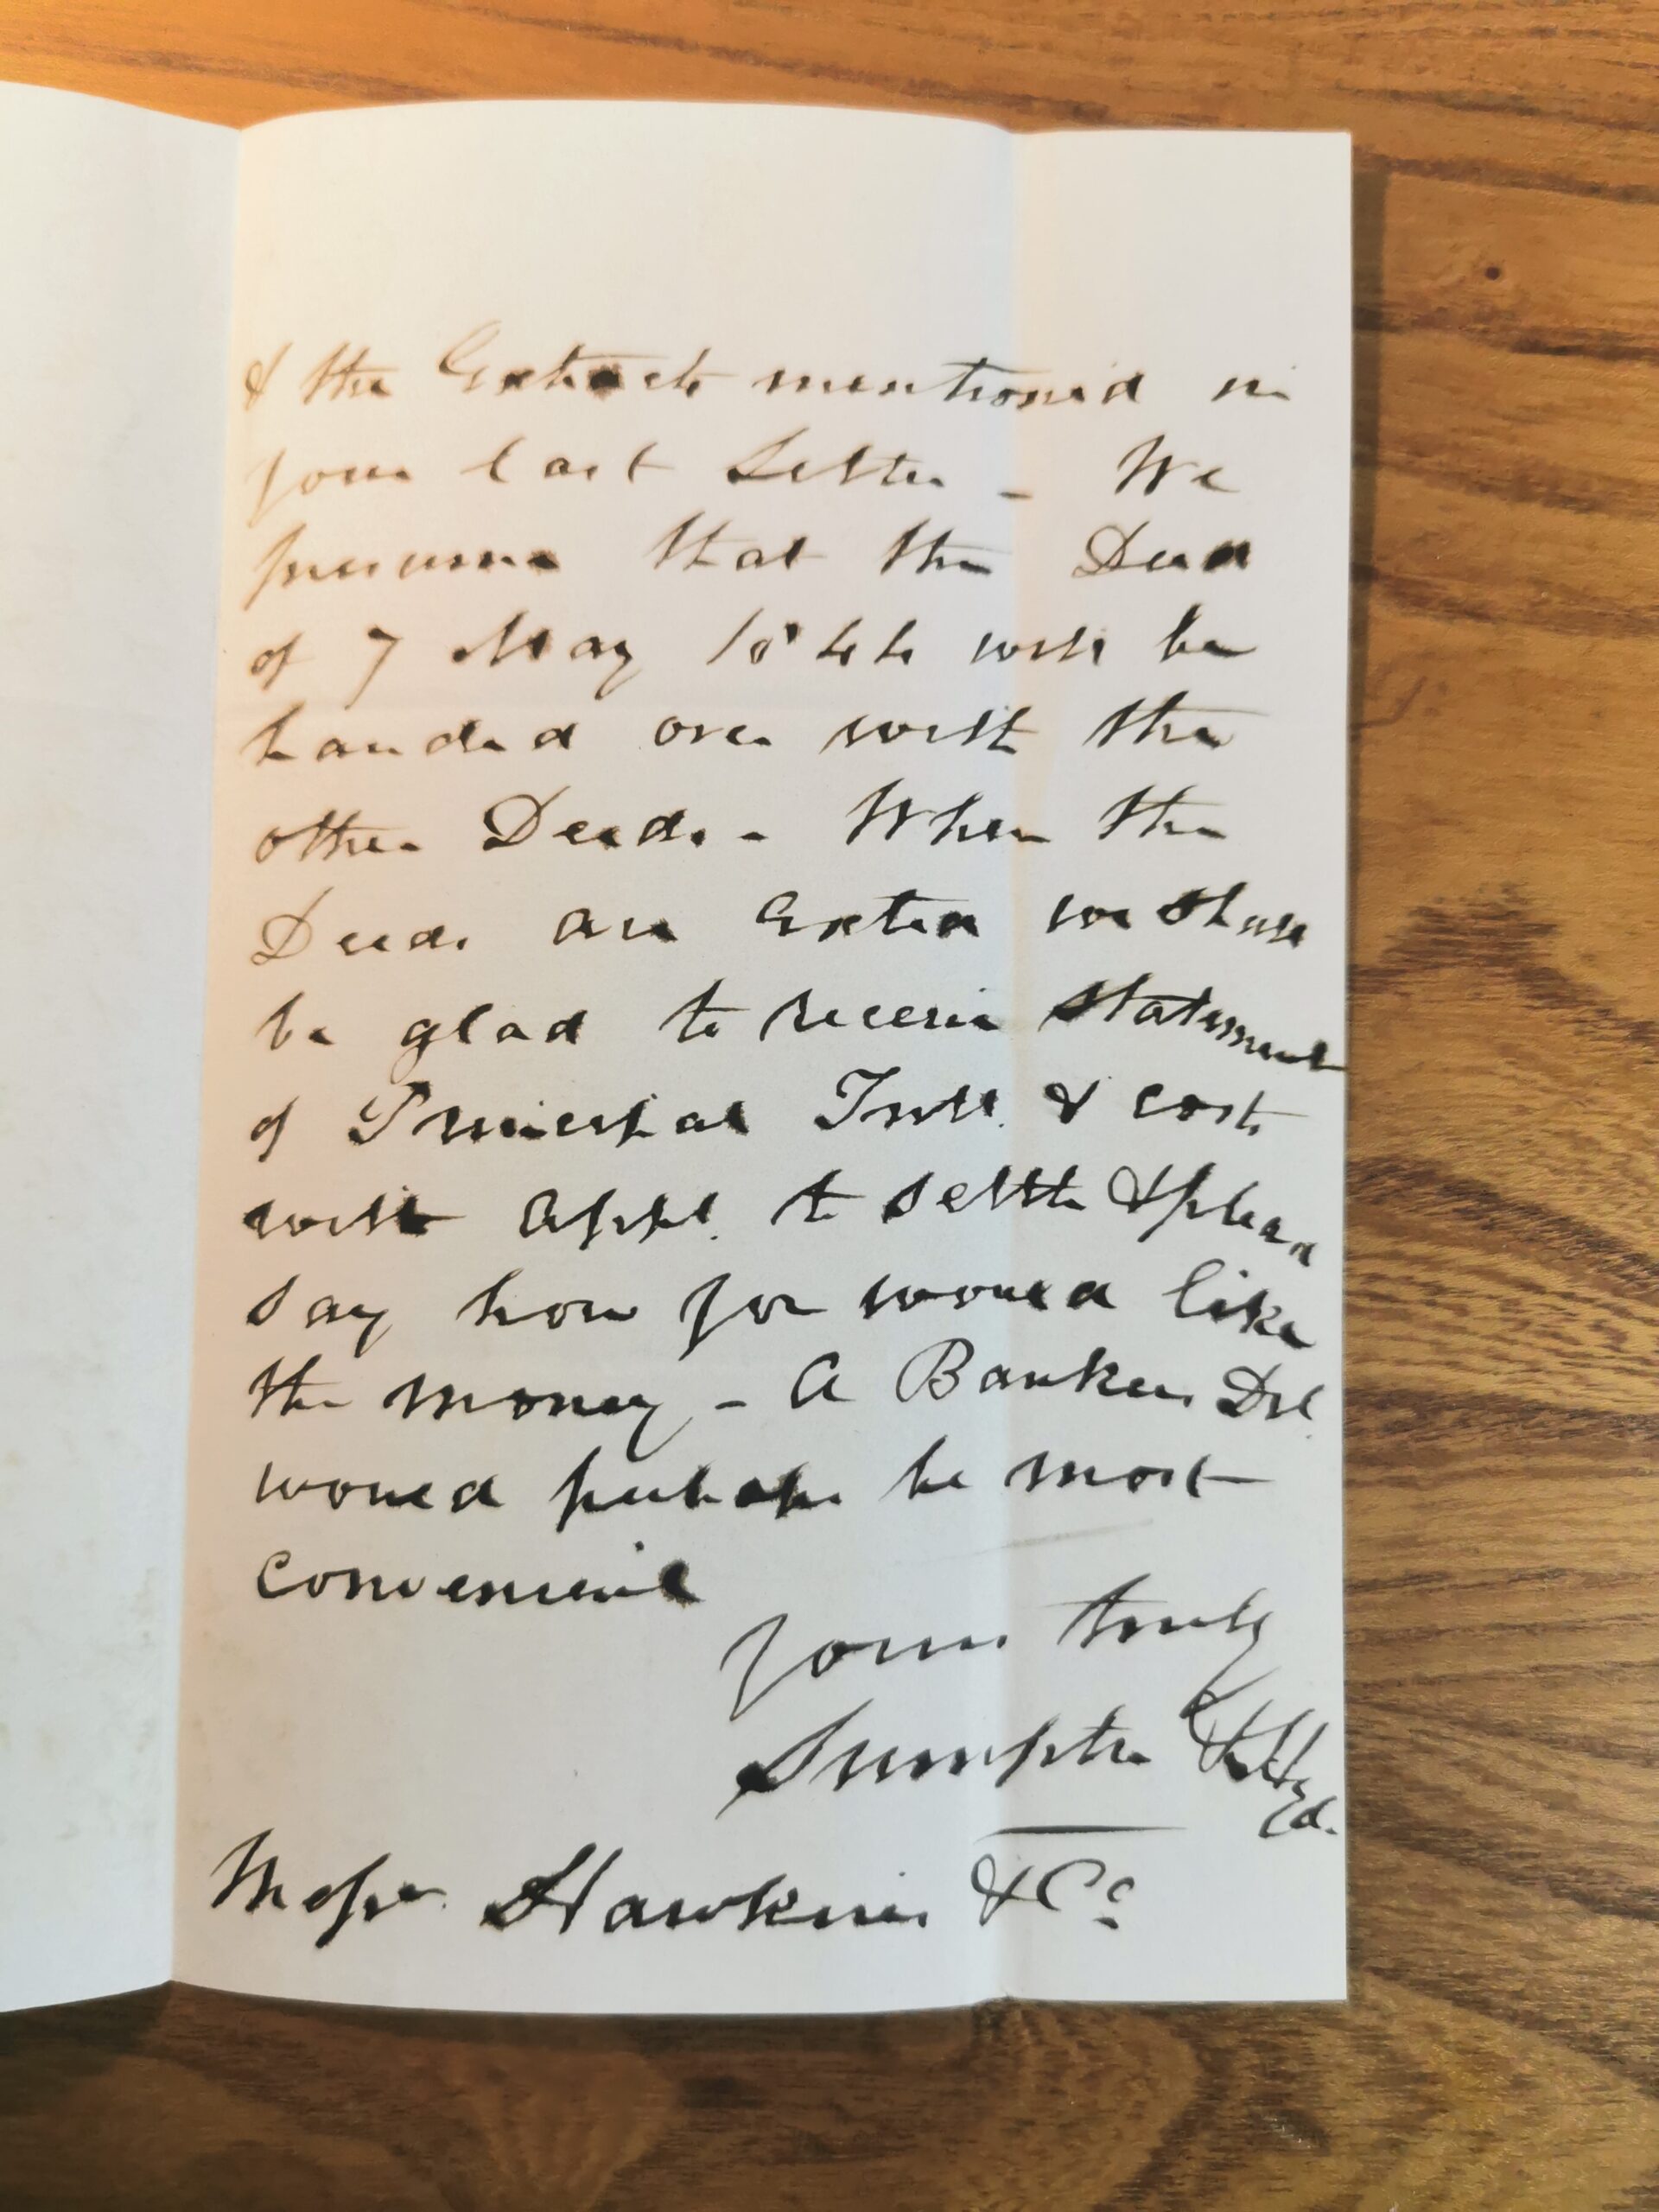 & the Extracts mentioned in
your last Letter - We
presume that the Deed
of 7 May 1844 will be
handed over with the
other Deeds - When the
Deeds are Exted we shall
be glad to receive Statement
of Principal Intt. & costs
with appt. to settle & please
say how you would like
the money - A Bankers Dft.
would perhaps be most
convenient
Yours truly
Sumpter &
Messrs Hawkins & Co